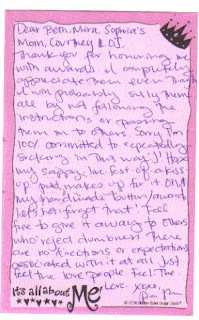 Dear Beth, Mira, Sophia's
Mom, Courtney & DJ,
Thank you for honoring me
with awards. I completely
appreciate them even though
I will probably sully them
all by not following the
instructions or passing
them on to others. Sorry I'm
100% committed to repeatedly
in this way! I hope
my sappy, of a kiss
up post makes up for it and
my handmade button/award,
let's not forget that! Feel
free to give it away to others
who reject dumbness. There
are no directions or expectations
associated with it at all. Just
feel the love people. Feel the.
Love. xoxo,
It's all about Me!